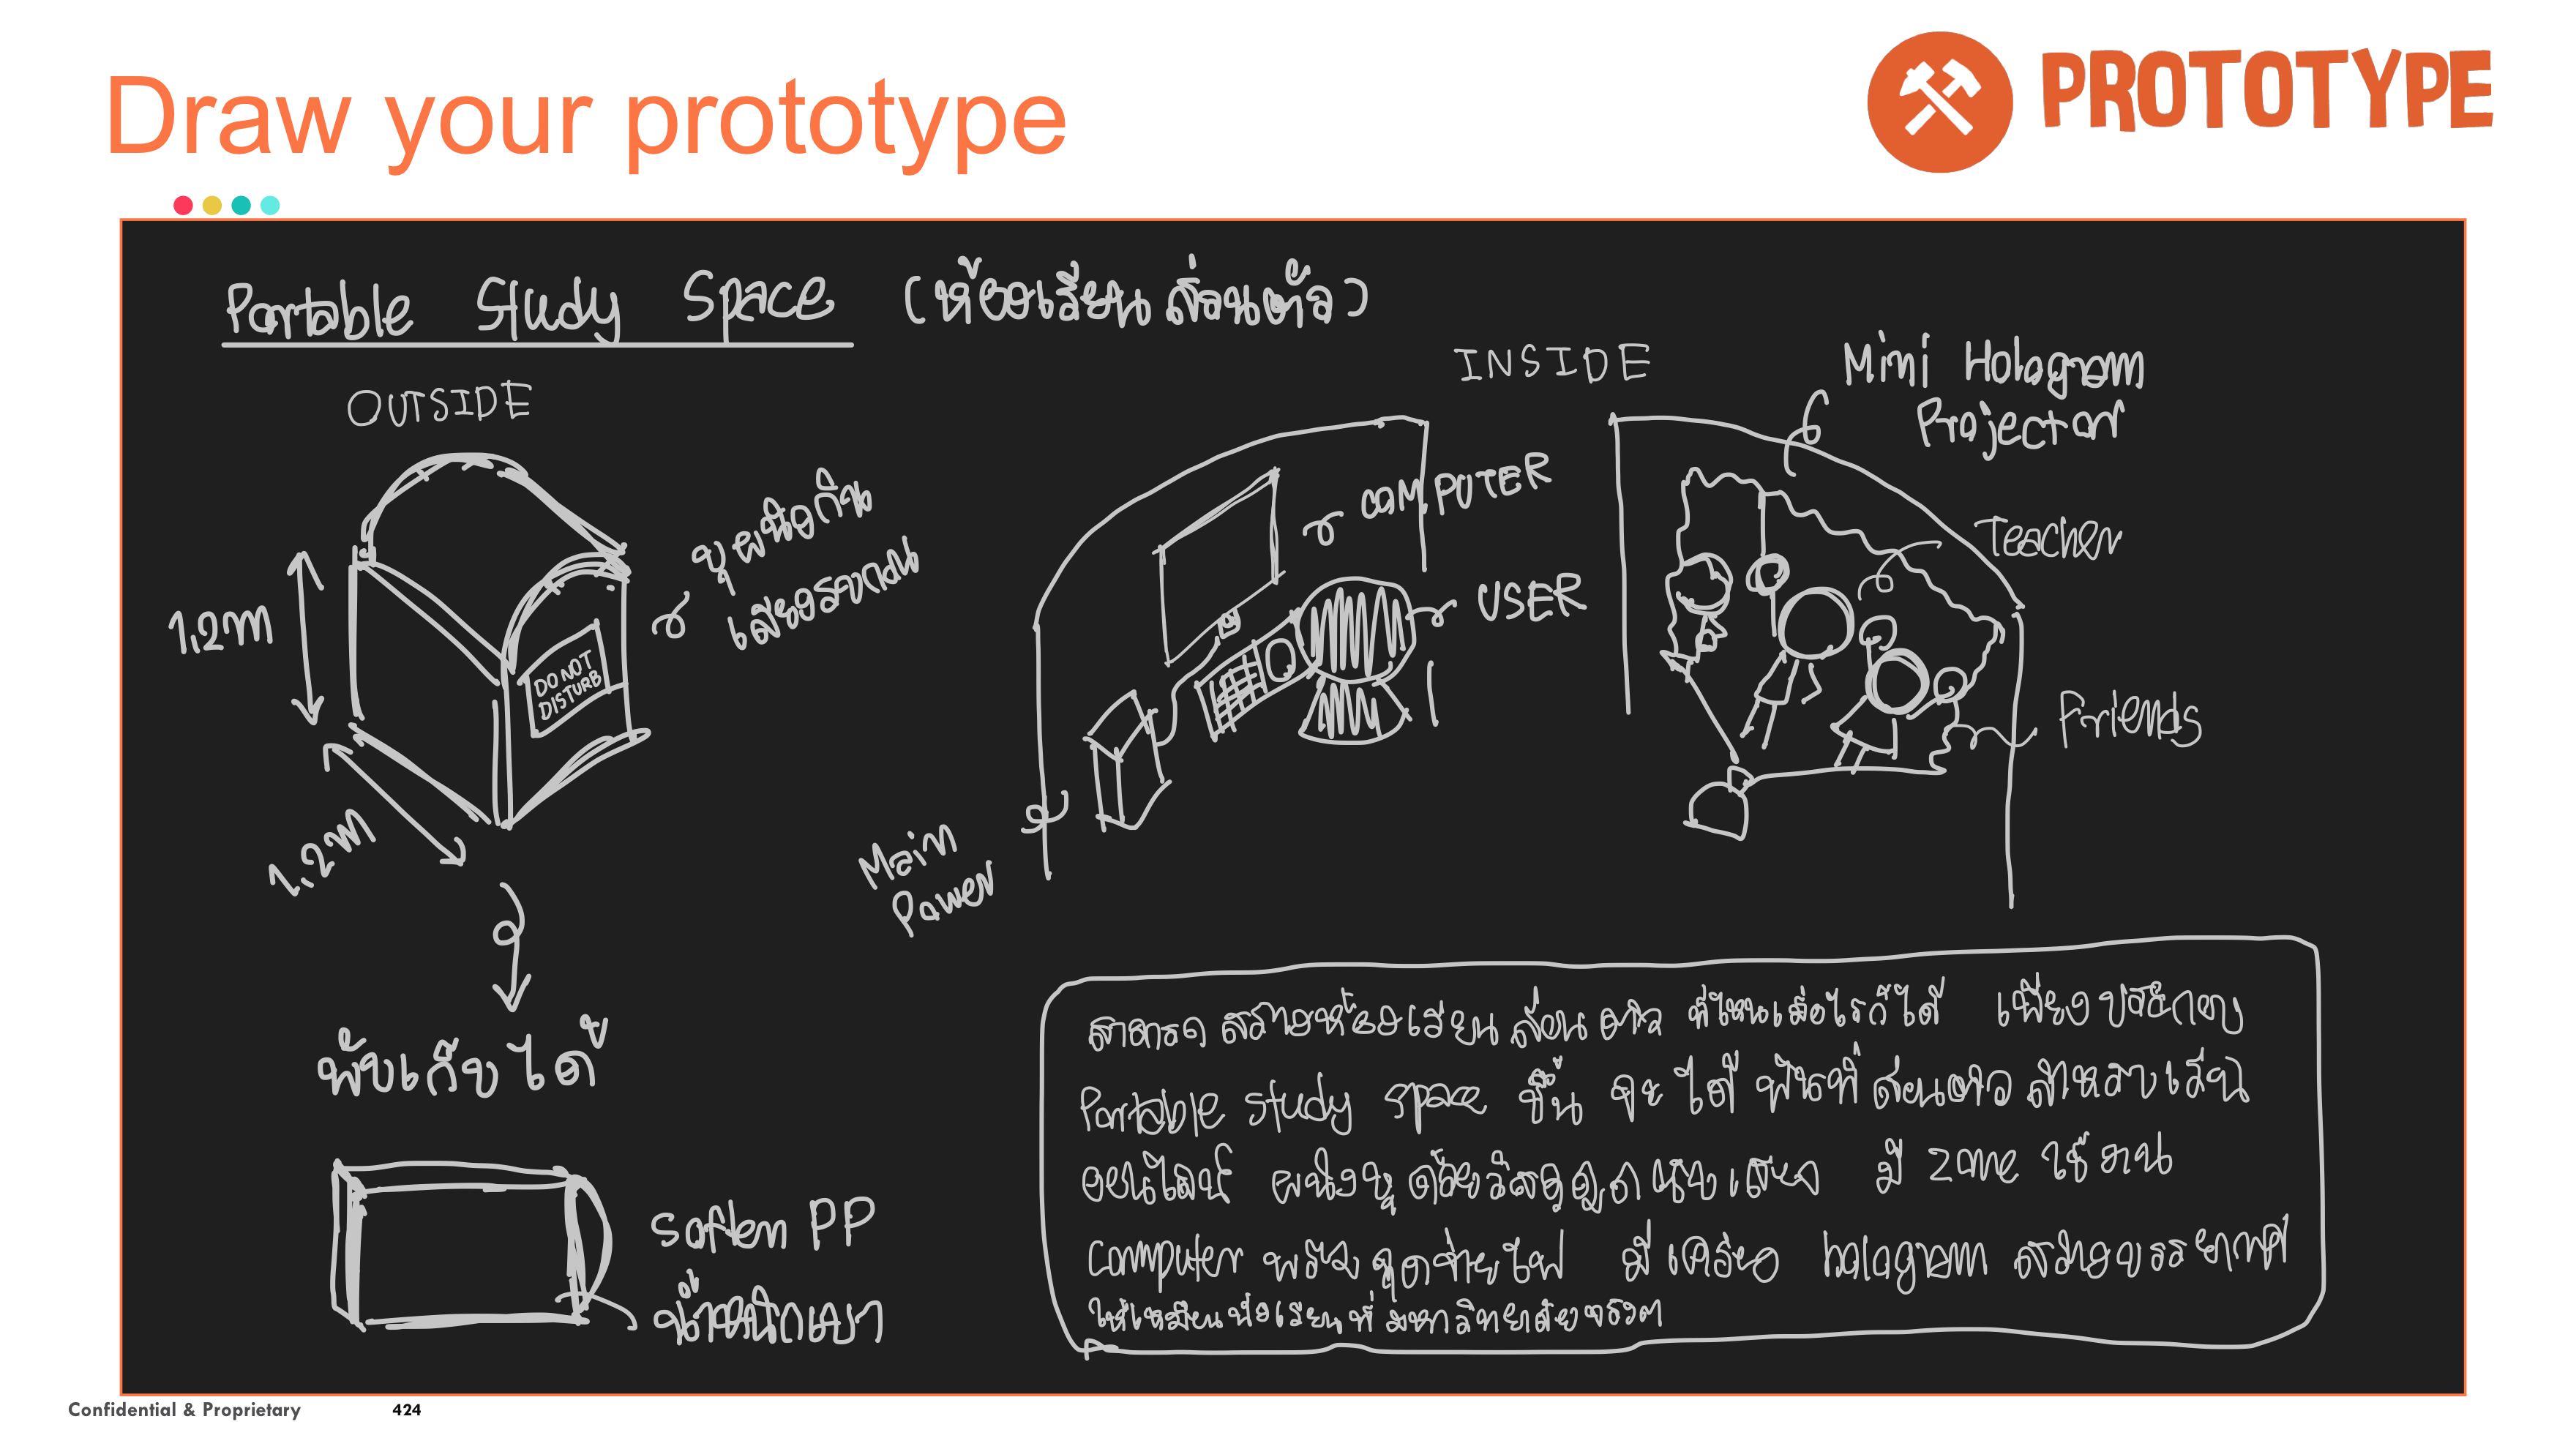 Draw your prototype
PROTOTYPE
Portable Study Space (ห้องเรียนส่วนตัว)
OUTSIDE
1.2m
1.2m
DO NOT
DISTURB
บุผนังกัน
เสียงรบกวน
พับเก็บได้
soften PP
น้ำหนักเบา
INSIDE
COMPUTER
USER
Main
Power
Mini Hologram
Projector
Teacher
Friends
สามารถสร้างห้องเรียนส่วนตัว ที่ไหนเมื่อไรก็ได้ เพียงประกอบ
Portable study space ขึ้น จะได้พื้นที่ส่วนตัวสำหรับเรียน
ออนไลน์ ผนังบุด้วยวัสดุดูดซับเสียง มี zone ใช้งาน
computer พร้อมจุดจ่ายไฟ มีเครื่อง hologram สร้างบรรยากาศ
ให้เหมือนห้องเรียนที่มหาวิทยาลัยจริงๆ
Confidential & Proprietary
424